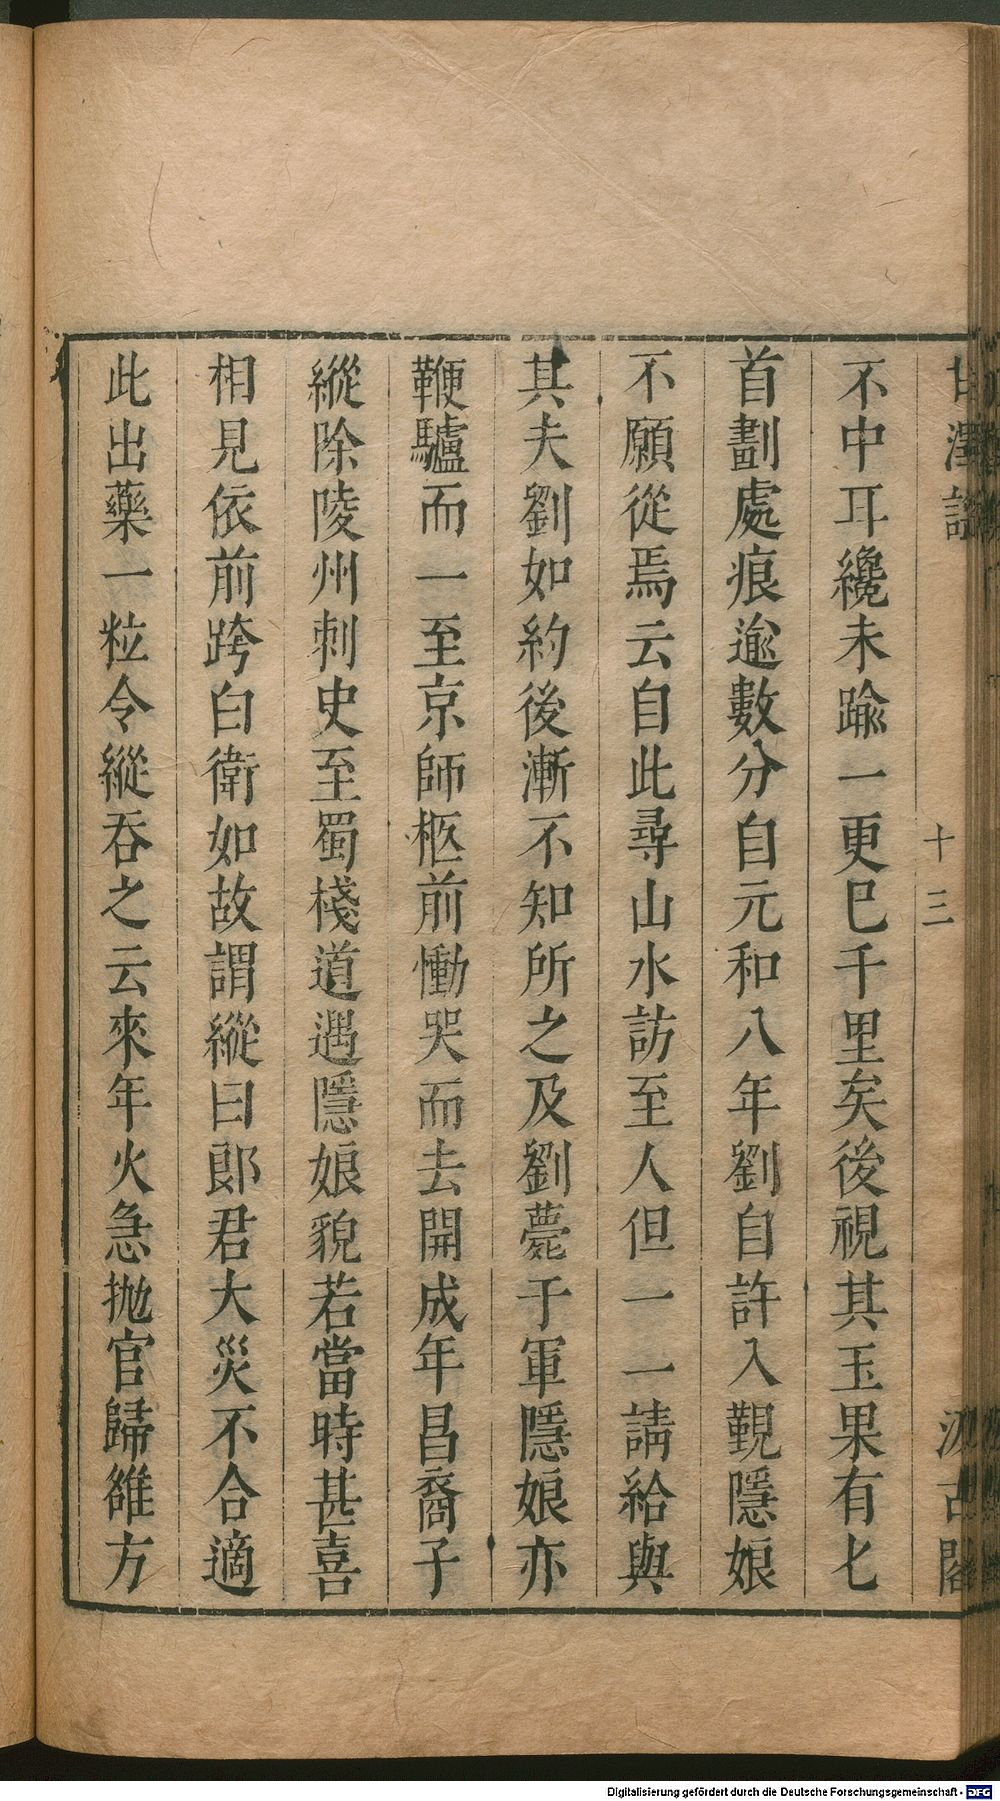 甘澤謠 十三 汲古閣
不中耳纔未踰一更巳千里矣後視其玉果有匕
首劃處痕逾數分自元和八年劉自許入覲隱娘
不願從焉云自此尋山水訪至人但一一請給與
其夫劉如約後漸不知所之及劉薨于軍隱娘亦
鞭驢而一至京師柩前慟哭而去開成年昌裔子
縱除陵州刺史至蜀棧道遇隱娘貌若當時甚喜
相見依前跨白衛如故謂縱曰郎君大災不合適
此出藥一粒令縱吞之云來年火急抛官歸雒方
Digitalisierung gefördert durch die Deutsche Forschungsgemeinschaft - DFG